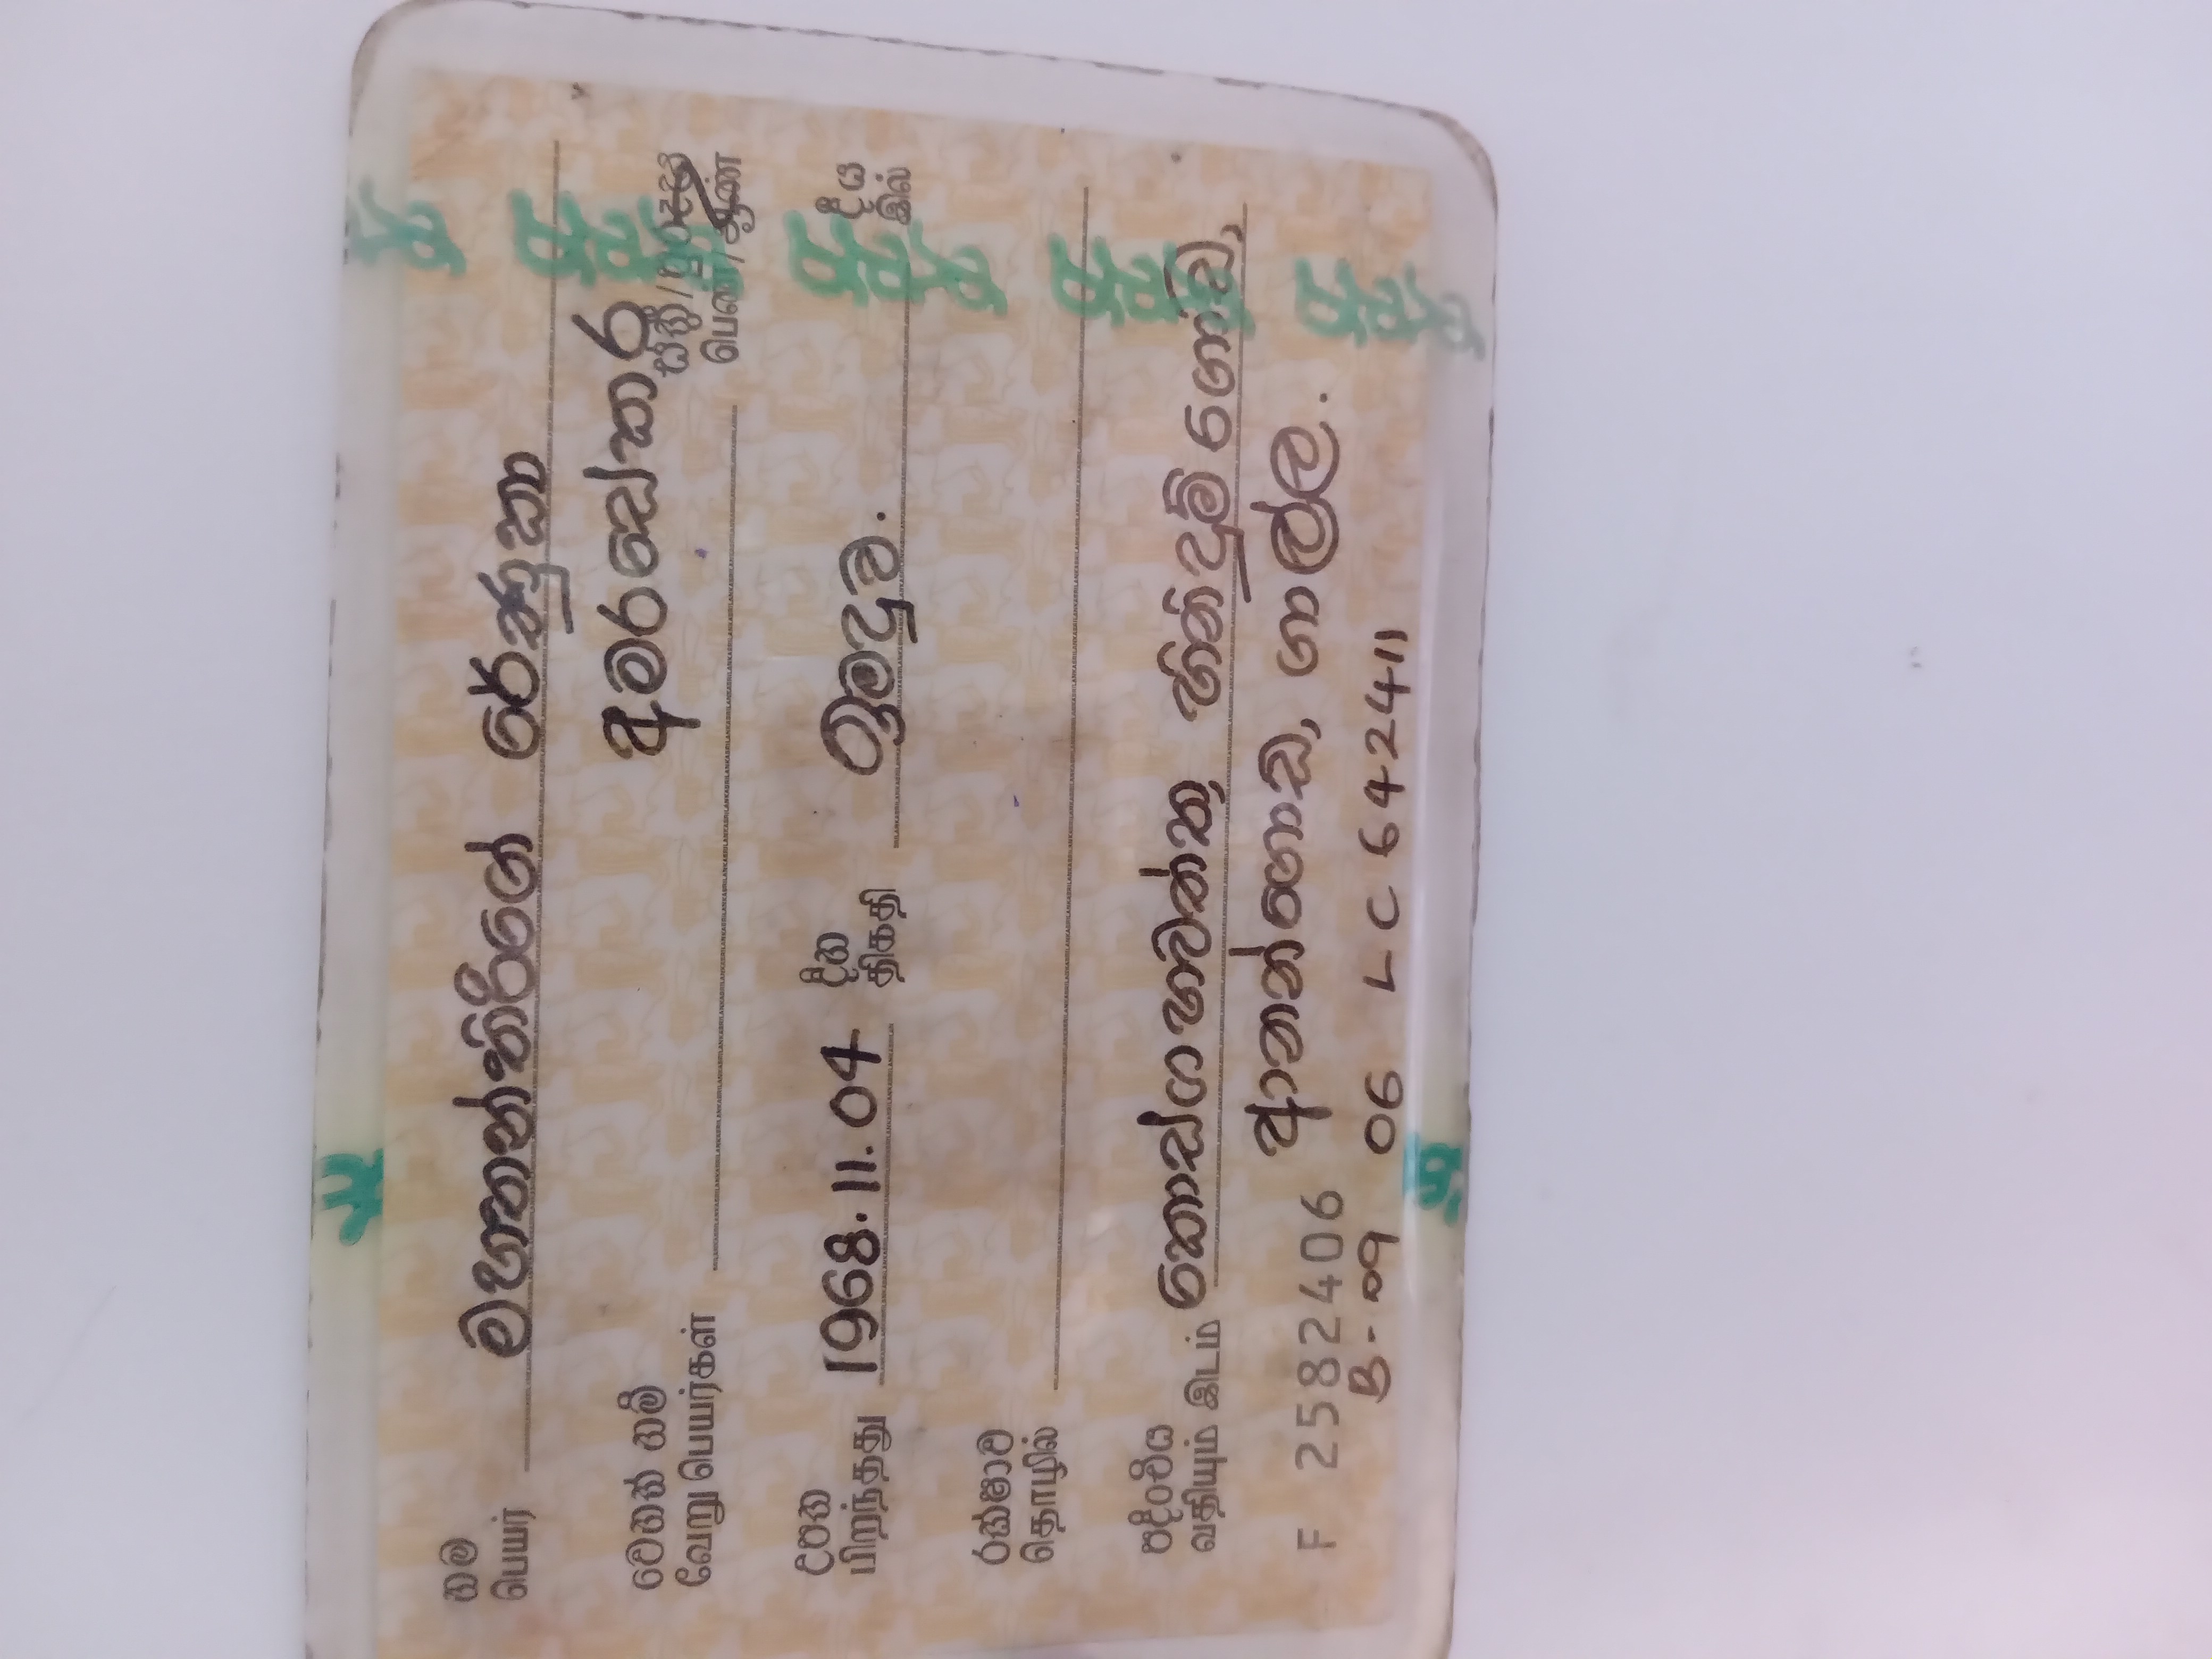 නම
பெயர் මහතන්ත්‍රිගේ රේණුකා
අමරසේකර
වෙනත් නම්
வேறு பெயர்கள்
ස්ත්‍රී/පුරුෂ
பெண்/ஆண்
උපන
பிறந்தது 1968.11.04 දින
திகதி ඉමදුව. දීය
இல்
රක්ෂාව
தொழில்
පදිංචිය
வதியும் இடம் කොස්ගහවත්ත, හිනිදුම් ගොඩ,
ආනන්ගොඩ, ගාල්ල.
F 2582406
B-09 06 LC 642411